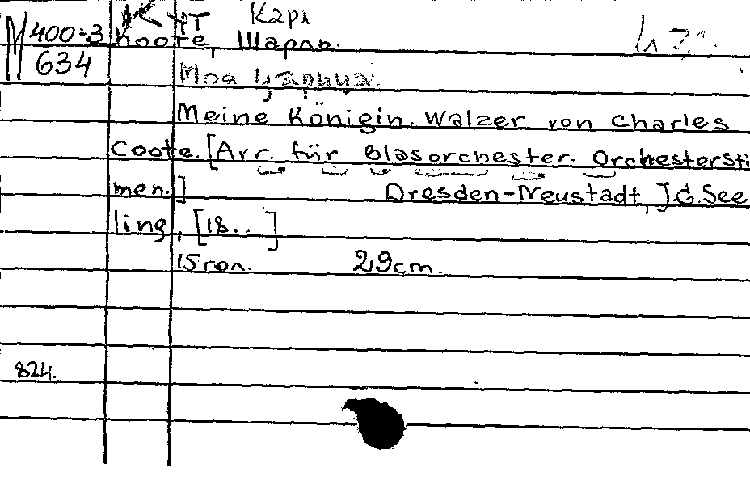 К ХТ Кapi
М 400-3 Кооте, Шарль.
634
Моя царица.
Meine Königin. Walzer von Charles
Coote. [Arr. für Blasorchester. Orchestersti
men.] Dresden-Neustadt, J.G. See
ling, [18..]
15 гол. 29cm.
824.